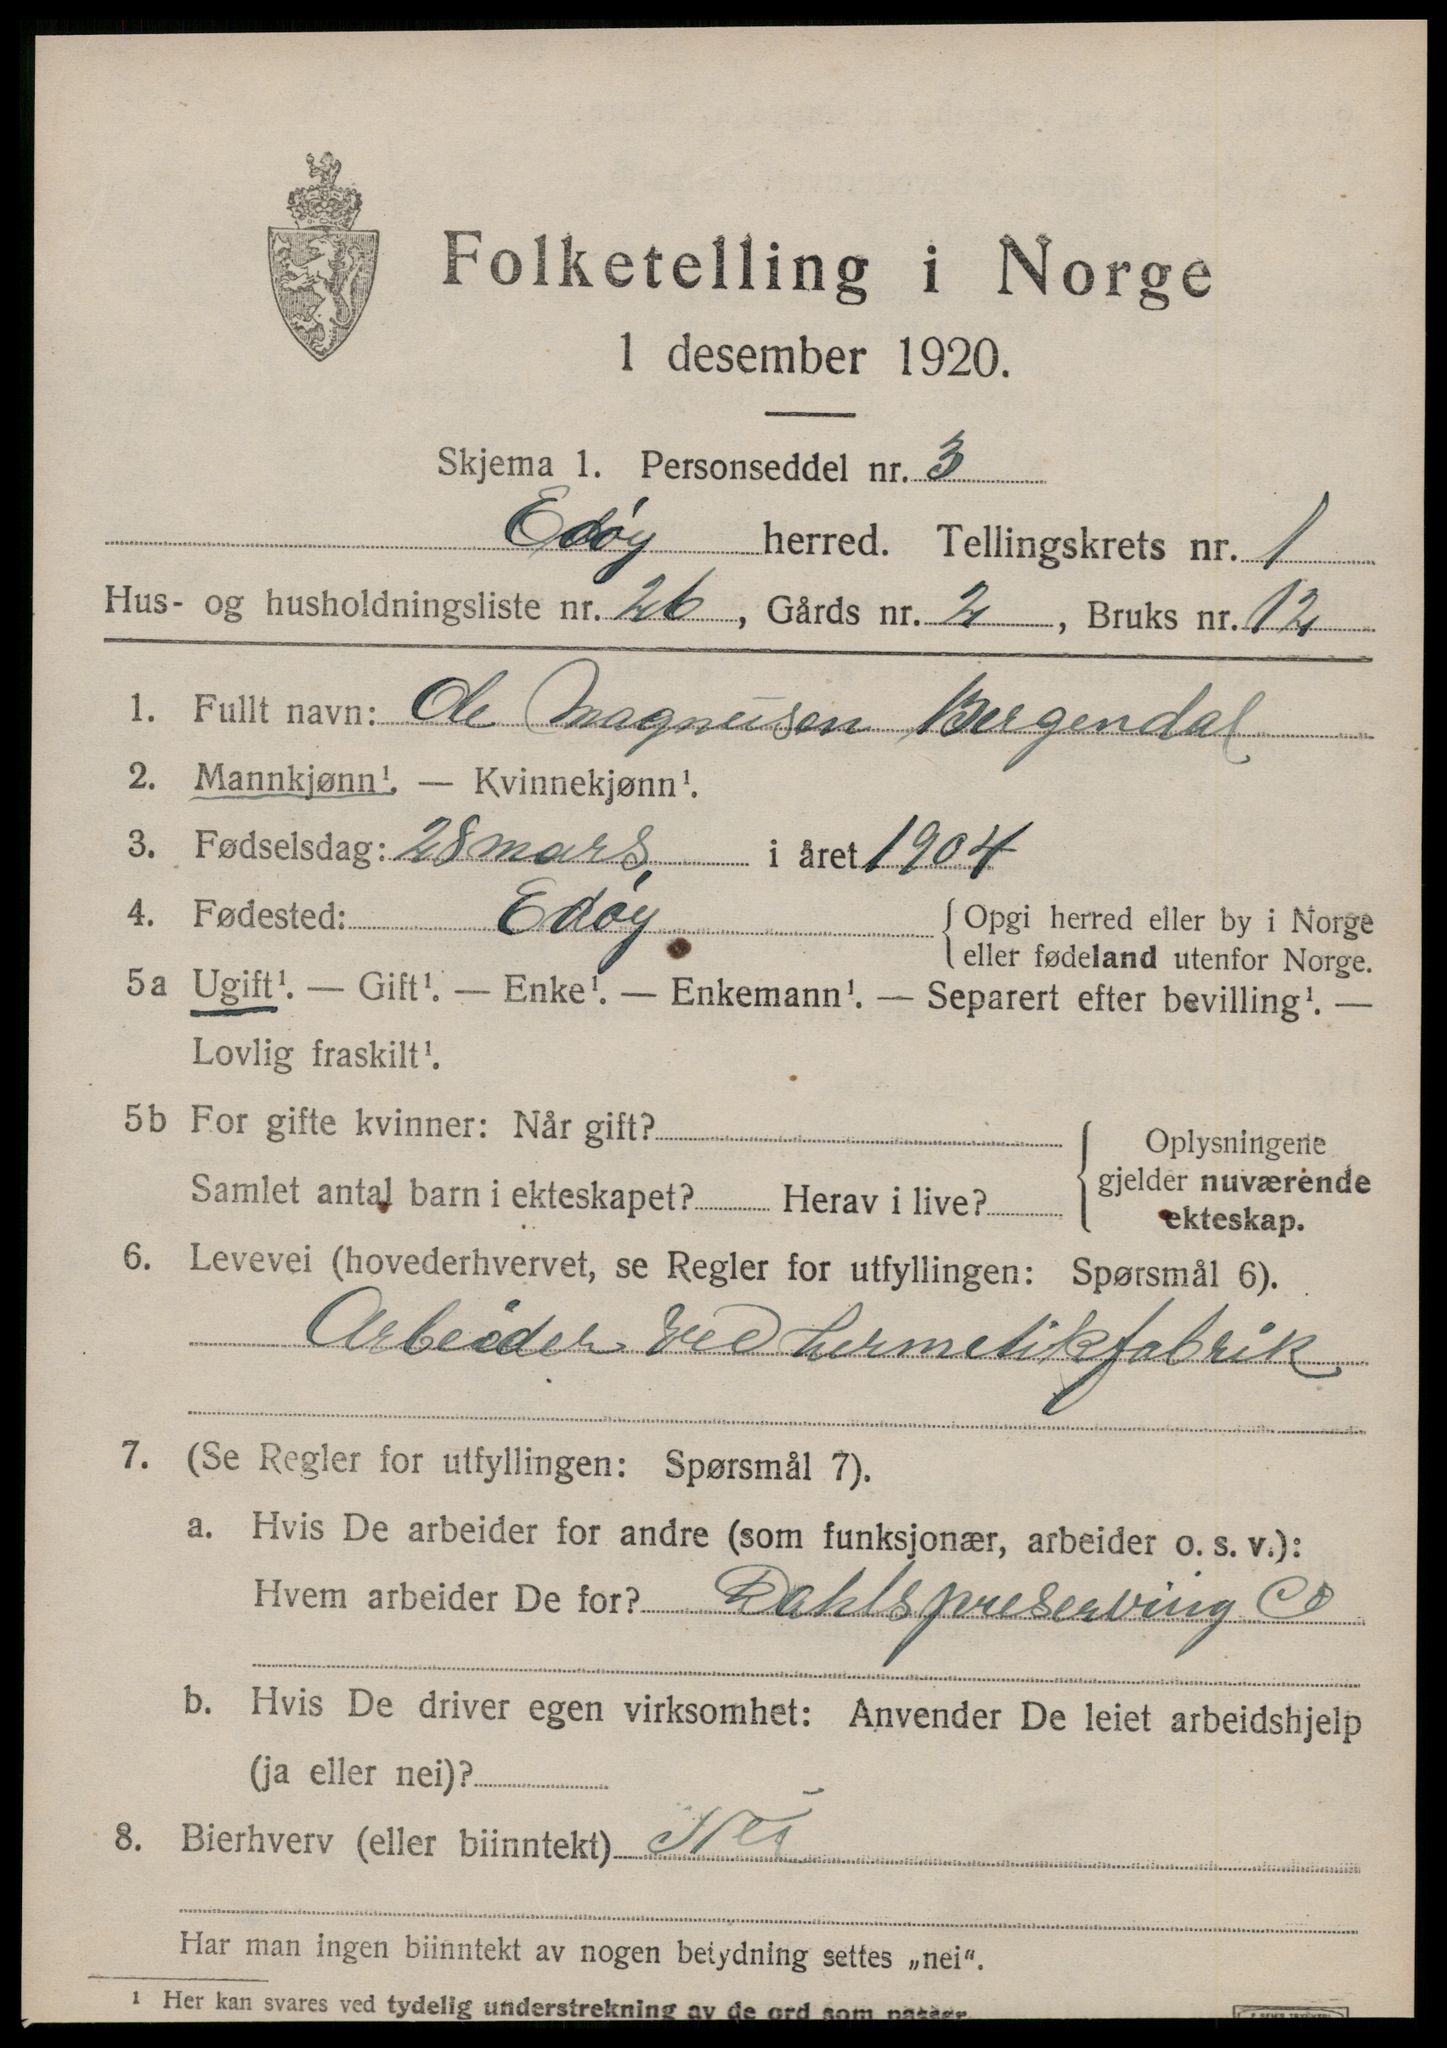 Folketelling i Norge
1 desember 1920.
Skjema 1. Personseddel nr. 3
Edøy herred. Tellingskrets nr. 1
Hus- og husholdningsliste nr. 26, Gårds nr. 2, Bruks nr. 12
1. Fullt navn: Ole Magnusen Bergendal
2. Mannkjønn¹. — Kvinnekjønn¹.
3. Fødselsdag: 28 mars. i året 1904
4. Fødested: Edøy { Opgi herred eller by i Norge
eller fødeland utenfor Norge.
5a Ugift¹. — Gift¹. — Enke¹. — Enkemann¹. — Separert efter bevilling¹. —
Lovlig fraskilt¹.
5b For gifte kvinner: Når gift?
Samlet antal barn i ekteskapet? Herav i live?
{ Oplysningene
gjelder nuværende
ekteskap.
6. Levevei (hovederhvervet, se Regler for utfyllingen: Spørsmål 6).
Arbeider ved hermetikfabrik
7. (Se Regler for utfyllingen: Spørsmål 7).
a. Hvis De arbeider for andre (som funksjonær, arbeider o. s. v.):
Hvem arbeider De for? Dahls preserving Co
b. Hvis De driver egen virksomhet: Anvender De leiet arbeidshjelp
(ja eller nei)?
8. Bierhverv (eller biinntekt) Nei
Har man ingen biinntekt av nogen betydning settes „nei“.
1 Her kan svares ved tydelig understrekning av de ord som passer.